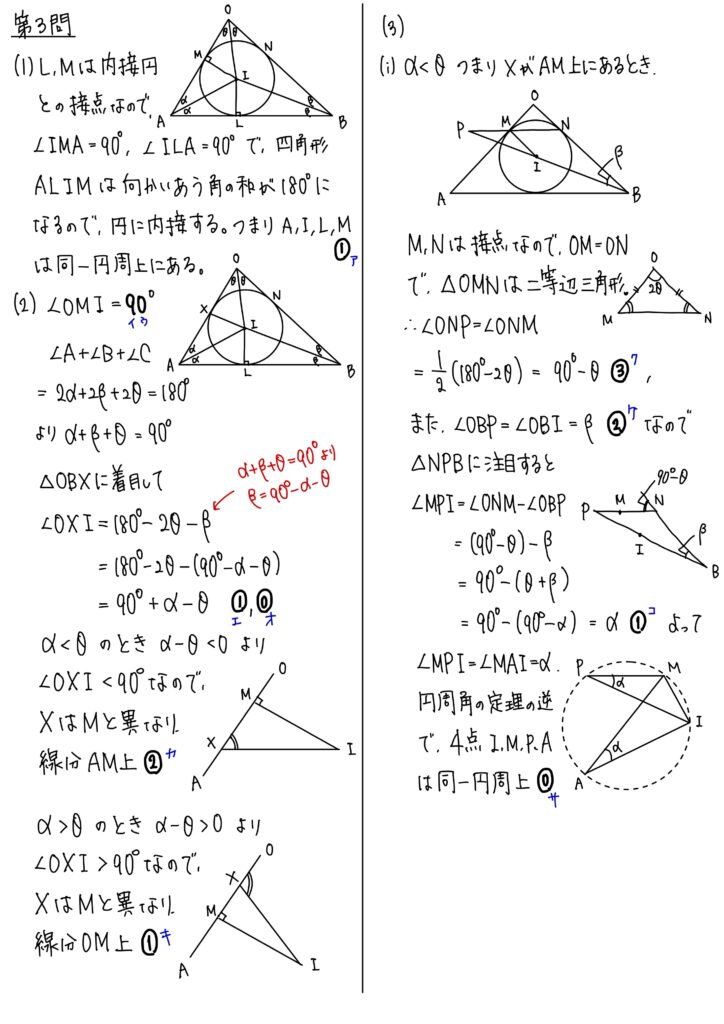 第3問
(1) L, Mは内接円
との接点なので、
∠IMA=90°, ∠ILA=90° で、四角形
ALIMは向かいあう角の和が180°に
なるので、円に内接する。つまりA, I, L, M
は同一円周上にある。 ① ア
O
θ θ
M
N
I
α
α
β
β
A
L
B
(2) ∠OMI=90°
イウ
∠A+∠B+∠C
= 2α+2β+2θ=180°
より α+β+θ=90°
△OBXに着目して
∠OXI=180°-2θ-β
α+β+θ=90°より
β=90°-α-θ
=180°-2θ-(90°-α-θ)
=90°+α-θ ①, ⓪
エ オ
O
θ θ
X
N
I
α
α
β
β
A
L
B
α<θ のとき α-θ<0 より
∠OXI<90°なので、
XはMと異なり、
線分AM上 ② カ
O
M
X
I
A
α>θ のとき α-θ>0 より
∠OXI>90°なので、
XはMと異なり、
線分OM上 ① キ
O
X
M
A
I
(3)
(i) α<θ つまりXがAM上にあるとき、
O
P
M
N
β
I
A
B
M, Nは接点なので、OM=ON
で、△OMNは二等辺三角形。
∴∠ONP=∠ONM
= 1/2(180°-2θ) = 90°-θ ③ ク,
O
2θ
M
N
また、∠OBP=∠OBI=β ② ケ なので
△NPBに注目すると
∠MPI=∠ONM-∠OBP
=(90°-θ)-β
=90°-(θ+β)
=90°-(90°-α)=α ① コ よって
90°-θ
P
M
N
I
β
B
∠MPI=∠MAI=α.
円周角の定理の逆
で、4点 I, M, P, A
は同一円周上 ⓪
サ
P
M
α
I
α
A